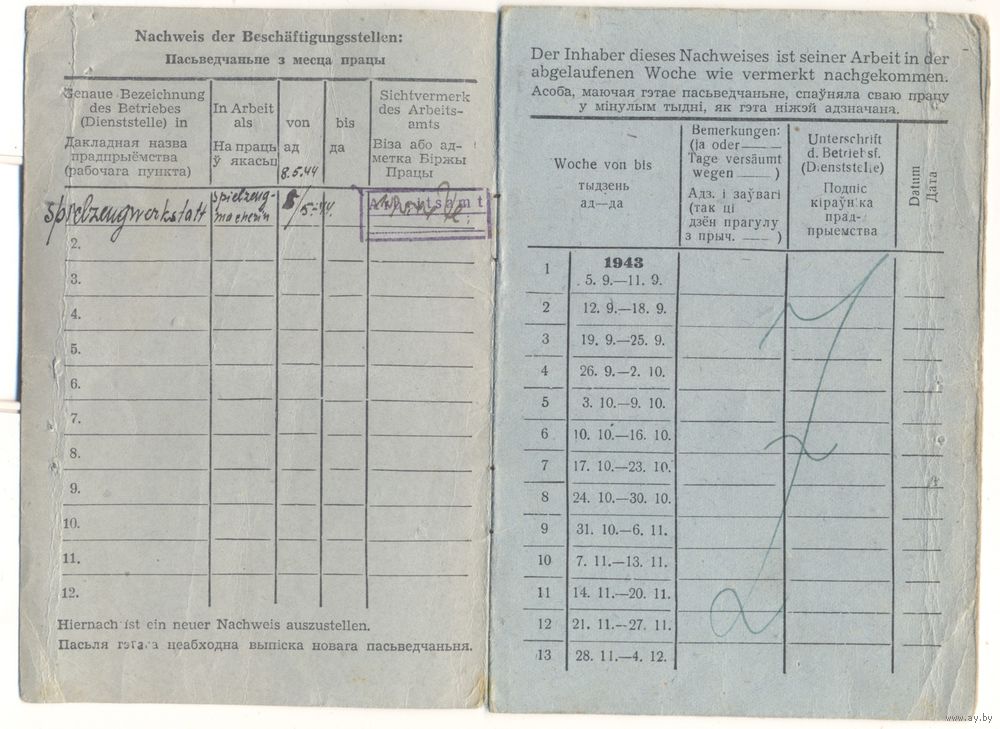 Nachweis der Beschäftigungsstellen:
Пасьведчаньне з месца працы
Genaue Bezeichnung
des Betriebes
(Dienststelle) in
Дакладная назва
прадпрыёмства
(рабочага пункта)
In Arbeit
als
На працы
ў якасьц
von
ад
8.5.44
bis
да
Sichtvermerk
des Arbeits-
amts
Віза або ад-
метка Біржы
Працы
Spielzeugwerkstatt
Spielzeug-
macherin
8/5.-44.
Arbeitsamt
2.
3.
4.
5.
6.
7.
8.
9.
10.
11.
12.
Hiernach ist ein neuer Nachweis auszustellen.
Пасьля гэтага неабходна выпіска новага пасьведчаньня.
Der Inhaber dieses Nachweises ist seiner Arbeit in der
abgelaufenen Woche wie vermerkt nachgekommen.
Асоба, маючая гэтае пасьведчаньне, спаўняла сваю працу
у мінулым тыдні, як гэта ніжэй адзначана.
Woche von bis
тыдзень
ад—да
Bemerkungen:
(ja oder
Tage versäumt
wegen )
Адз. і заўвагі
(так ці
дзён прагулу
з прыч. )
Unterschrift
d. Betriebsf.
(Dienststelle)
Подпіс
кіраўніка
прад-
прыемства
Datum
Дата
1 1943
5. 9.—11. 9.
2 12. 9.—18. 9.
3 19. 9.—25. 9.
4 26. 9.—2. 10.
5 3. 10.—9. 10.
6 10. 10.—16. 10.
7 17. 10.—23. 10.
8 24. 10.—30. 10.
9 31. 10.—6. 11.
10 7. 11.—13. 11.
11 14. 11.—20. 11.
12 21. 11.—27. 11.
13 28. 11.—4. 12.
www.ay.by